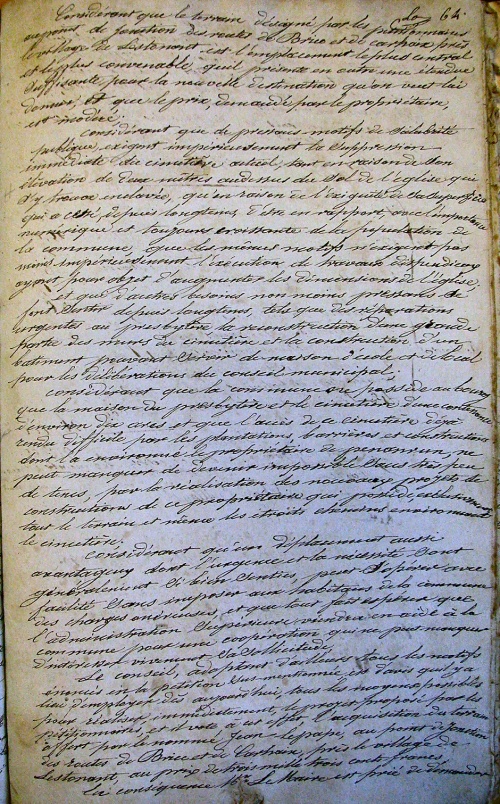 64.
Considérant que le terrain désigné par les pétitionnaires
au point de jonction des routes de Briec et de Carhaix, près
le village de Lestonant est l'emplacement le plus central
et le plus convenable, qu'il présente en outre une étendue
suffisante pour la nouvelle destination qu'on veut lui
donner, et que le prix demandé par le propriétaire
est modéré;
Considérant que de pressans motifs de salubrité
publique, exigent impérieusement la suppression
immédiate du cimetière actuel, tant en raison de son
élévation de deux mètres au dessus du sol de l'église qui
s'y trouve enclavée, qu'en raison de l'exiguité de sa superficie
qui a cessé depuis longtems d'être en rapport avec l'importance
numérique et toujours croissante de la population de
la commune, que des mêmes motifs n'exigent pas
moins impérieusement l'exécution de travaux dispendieux
ayant pour objet d'augmenter les dimensions de l'église,
et que d'autres besoins non moins pressants se
font sentir depuis longtems, tels que des réparations
urgentes au presbytère, la reconstruction d'une grande
partie des murs du cimetière et la construction d'un
batiment pouvant servir de maison d'école et de local
pour les délibérations du conseil municipal;
Considérant que la commune ne possède au bourg
que la maison du presbytère et le cimetière d'une contenance
d'environ dix ares et que l'accès de ce cimetière déjà
rendu difficile par les plantations, barrières et constructions
dont l'a environné le propriétaire de penanrun, ne
peut manquer de devenir impossible dans très peu
de tems, par la réalisation des nouveaux projets de
constructions de ce propriétaire qui possède exclusivement
tout le terrain et même les étroits chemins environnant
le cimetière.
Considérant qu'un déplacement aussi
avantageux dont l'urgence et la nécessité sont
généralement si bien senties, peut s'opérer avec
facilité sans imposer aux habitans de la commune
des charges onéreuses, et que tout fait espérer que
l'administration supérieure viendra en aide à la
commune pour une coopération qui ne peut manquer
d'intéresser vivement sa sollicitude,
Le conseil, adoptant d'ailleurs tous les motifs
énoncés en la pétition sus-mentionnée est d'avis qu'il y a
lieu d'employer dès aujourd'hui, tous les moyens possibles
pour réaliser immédiatement le projet proposé par les
pétitionnaires, et il vote à cet effet, l'acquisition du terrain
offert par le nommé Jean Lepape, au point de jonction
des routes de Briec et de Carhaix, près le village de
Lestonant, au prix de trois mille trois cents francs.
En conséquence Mr. Le Maire est prié de demander